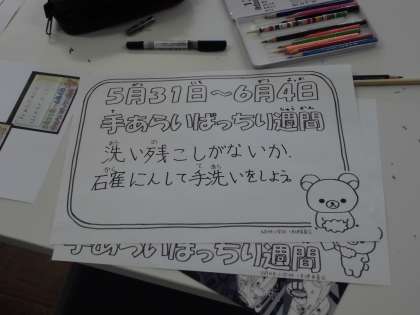 5月31日～6月4日
手あらいばっちり週間
洗い残こしがないか、
石確にんして手洗いをしよう。
手あらいばっちり週間